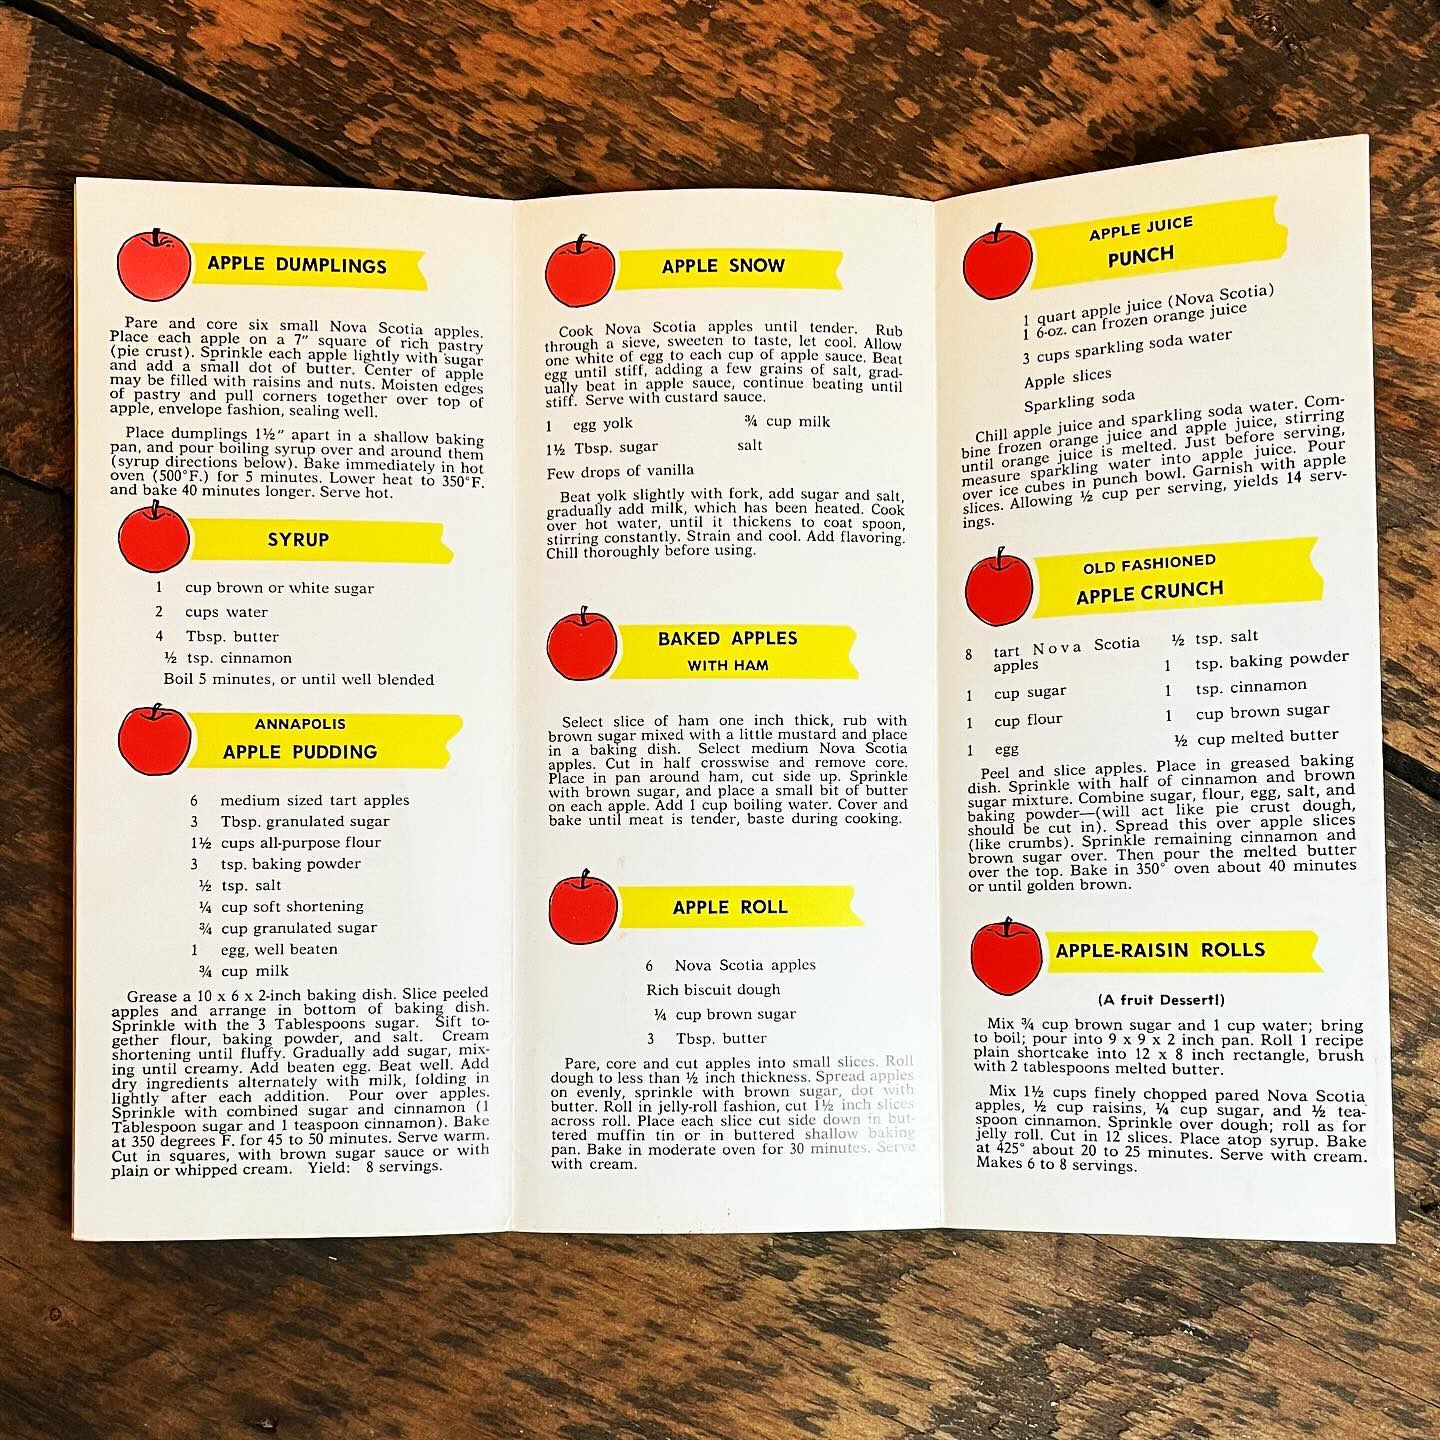 APPLE DUMPLINGS
Pare and core six small Nova Scotia apples.
Place each apple on a 7” square of rich pastry
(pie crust). Sprinkle each apple lightly with sugar
and add a small dot of butter. Center of apple
may be filled with raisins and nuts. Moisten edges
of pastry and pull corners together over top of
apple, envelope fashion, sealing well.
Place dumplings 1½” apart in a shallow baking
pan, and pour boiling syrup over and around them
(syrup directions below). Bake immediately in hot
oven (500°F.) for 5 minutes. Lower heat to 350°F.
and bake 40 minutes longer. Serve hot.
SYRUP
1 cup brown or white sugar
2 cups water
4 Tbsp. butter
½ tsp. cinnamon
Boil 5 minutes, or until well blended
ANNAPOLIS
APPLE PUDDING
6 medium sized tart apples
3 Tbsp. granulated sugar
1½ cups all-purpose flour
3 tsp. baking powder
½ tsp. salt
¼ cup soft shortening
¾ cup granulated sugar
1 egg, well beaten
¾ cup milk
Grease a 10 x 6 x 2-inch baking dish. Slice peeled
apples and arrange in bottom of baking dish.
Sprinkle with the 3 Tablespoons sugar. Sift to-
gether flour, baking powder, and salt. Cream
shortening until fluffy. Gradually add sugar, mix-
ing until creamy. Add beaten egg. Beat well. Add
dry ingredients alternately with milk, folding in
lightly after each addition. Pour over apples.
Sprinkle with combined sugar and cinnamon (1
Tablespoon sugar and 1 teaspoon cinnamon). Bake
at 350 degrees F. for 45 to 50 minutes. Serve warm.
Cut in squares, with brown sugar sauce or with
plain or whipped cream. Yield: 8 servings.
APPLE SNOW
Cook Nova Scotia apples until tender. Rub
through a sieve, sweeten to taste, let cool. Allow
one white of egg to each cup of apple sauce. Beat
egg until stiff, adding a few grains of salt, grad-
ually beat in apple sauce, continue beating until
stiff. Serve with custard sauce.
1 egg yolk ¾ cup milk
1½ Tbsp. sugar salt
Few drops of vanilla
Beat yolk slightly with fork, add sugar and salt,
gradually add milk, which has been heated. Cook
over hot water, until it thickens to coat spoon,
stirring constantly. Strain and cool. Add flavoring.
Chill thoroughly before using.
BAKED APPLES
WITH HAM
Select slice of ham one inch thick, rub with
brown sugar mixed with a little mustard and place
in a baking dish. Select medium Nova Scotia
apples. Cut in half crosswise and remove core.
Place in pan around ham, cut side up. Sprinkle
with brown sugar, and place a small bit of butter
on each apple. Add 1 cup boiling water. Cover and
bake until meat is tender, baste during cooking.
APPLE ROLL
6 Nova Scotia apples
Rich biscuit dough
¼ cup brown sugar
3 Tbsp. butter
Pare, core and cut apples into small slices. Roll
dough to less than ½ inch thickness. Spread apples
on evenly, sprinkle with brown sugar, dot with
butter. Roll in jelly-roll fashion, cut 1½ inch slices
across roll. Place each slice cut side down in but-
tered muffin tin or in buttered shallow baking
pan. Bake in moderate oven for 30 minutes. Serve
with cream.
APPLE JUICE
PUNCH
1 quart apple juice (Nova Scotia)
1 6-oz. can frozen orange juice
3 cups sparkling soda water
Apple slices
Sparkling soda
Chill apple juice and sparkling soda water. Com-
bine frozen orange juice and apple juice, stirring
until orange juice is melted. Just before serving,
measure sparkling water into apple juice. Pour
over ice cubes in punch bowl. Garnish with apple
slices. Allowing ½ cup per serving, yields 14 serv-
ings.
OLD FASHIONED
APPLE CRUNCH
8 tart Nova Scotia ½ tsp. salt
apples 1 tsp. baking powder
1 cup sugar 1 tsp. cinnamon
1 cup flour 1 cup brown sugar
1 egg ½ cup melted butter
Peel and slice apples. Place in greased baking
dish. Sprinkle with half of cinnamon and brown
sugar mixture. Combine sugar, flour, egg, salt, and
baking powder—(will act like pie crust dough,
should be cut in). Spread this over apple slices
(like crumbs). Sprinkle remaining cinnamon and
brown sugar over. Then pour the melted butter
over the top. Bake in 350° oven about 40 minutes
or until golden brown.
APPLE-RAISIN ROLLS
(A fruit Dessert!)
Mix ¾ cup brown sugar and 1 cup water; bring
to boil; pour into 9 x 9 x 2 inch pan. Roll 1 recipe
plain shortcake into 12 x 8 inch rectangle, brush
with 2 tablespoons melted butter.
Mix 1½ cups finely chopped pared Nova Scotia
apples, ½ cup raisins, ¼ cup sugar, and ½ tea-
spoon cinnamon. Sprinkle over dough; roll as for
jelly roll. Cut in 12 slices. Place atop syrup. Bake
at 425° about 20 to 25 minutes. Serve with cream.
Makes 6 to 8 servings.